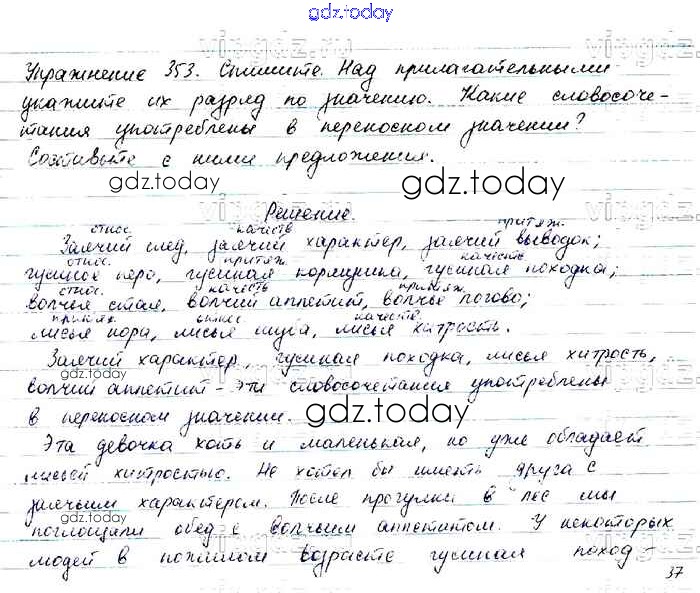 gdz.today
Упражнение 353. Спишите. Над прилагательными
укажите их разряд по значению. Какие словосоче-
тания употреблены в переносном значении?
Составьте с ними предложения.
gdz.today
gdz.today
Решение.
относ. качеств притяж.
Заячий след, заячий характер, заячий выводок;
относ. притяж. качеств
гусиное перо, гусиная кормушка, гусиная походка;
относ. качеств притяж.
волчья стая, волчий аппетит, волчье логово;
притяж. относ качеств.
лисья нора, лисья шуба, лисья хитрость.
Заячий характер, гусиная походка, лисья хитрость,
gdz.today
волчий аппетит - эти словосочетания употреблены
в переносном значении.
gdz.today
Эта девочка хоть и маленькая, но уже обладает
лисьей хитростью. Не хотел бы иметь друга с
заячьим характером. После прогулки в лес мы
gdz.today
поглощали обед с волчьим аппетитом. У некоторых
людей в пожилом возрасте гусиная поход-
37